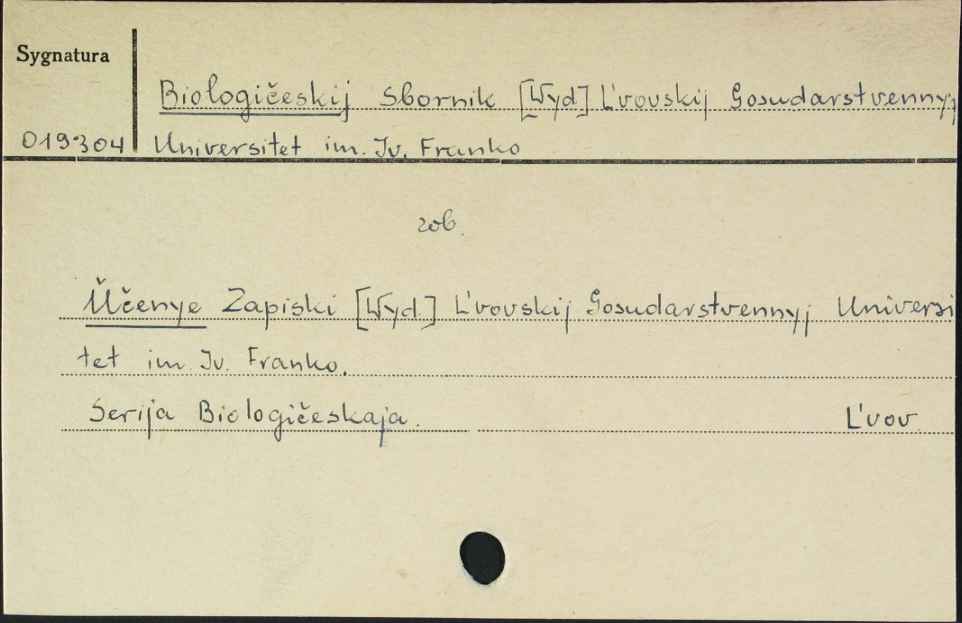 Sygnatura
Biologičeskij Sbornik [Wyd] L'vovskij Gosudarstvennyj
019304 Universitet im. Iv. Franko
zob.
Učenye Zapiski [Wyd.] L'vovskij Gosudarstvennyj Universi
tet im. Iv. Franko.
Serija Biologičeskaja. L'vov